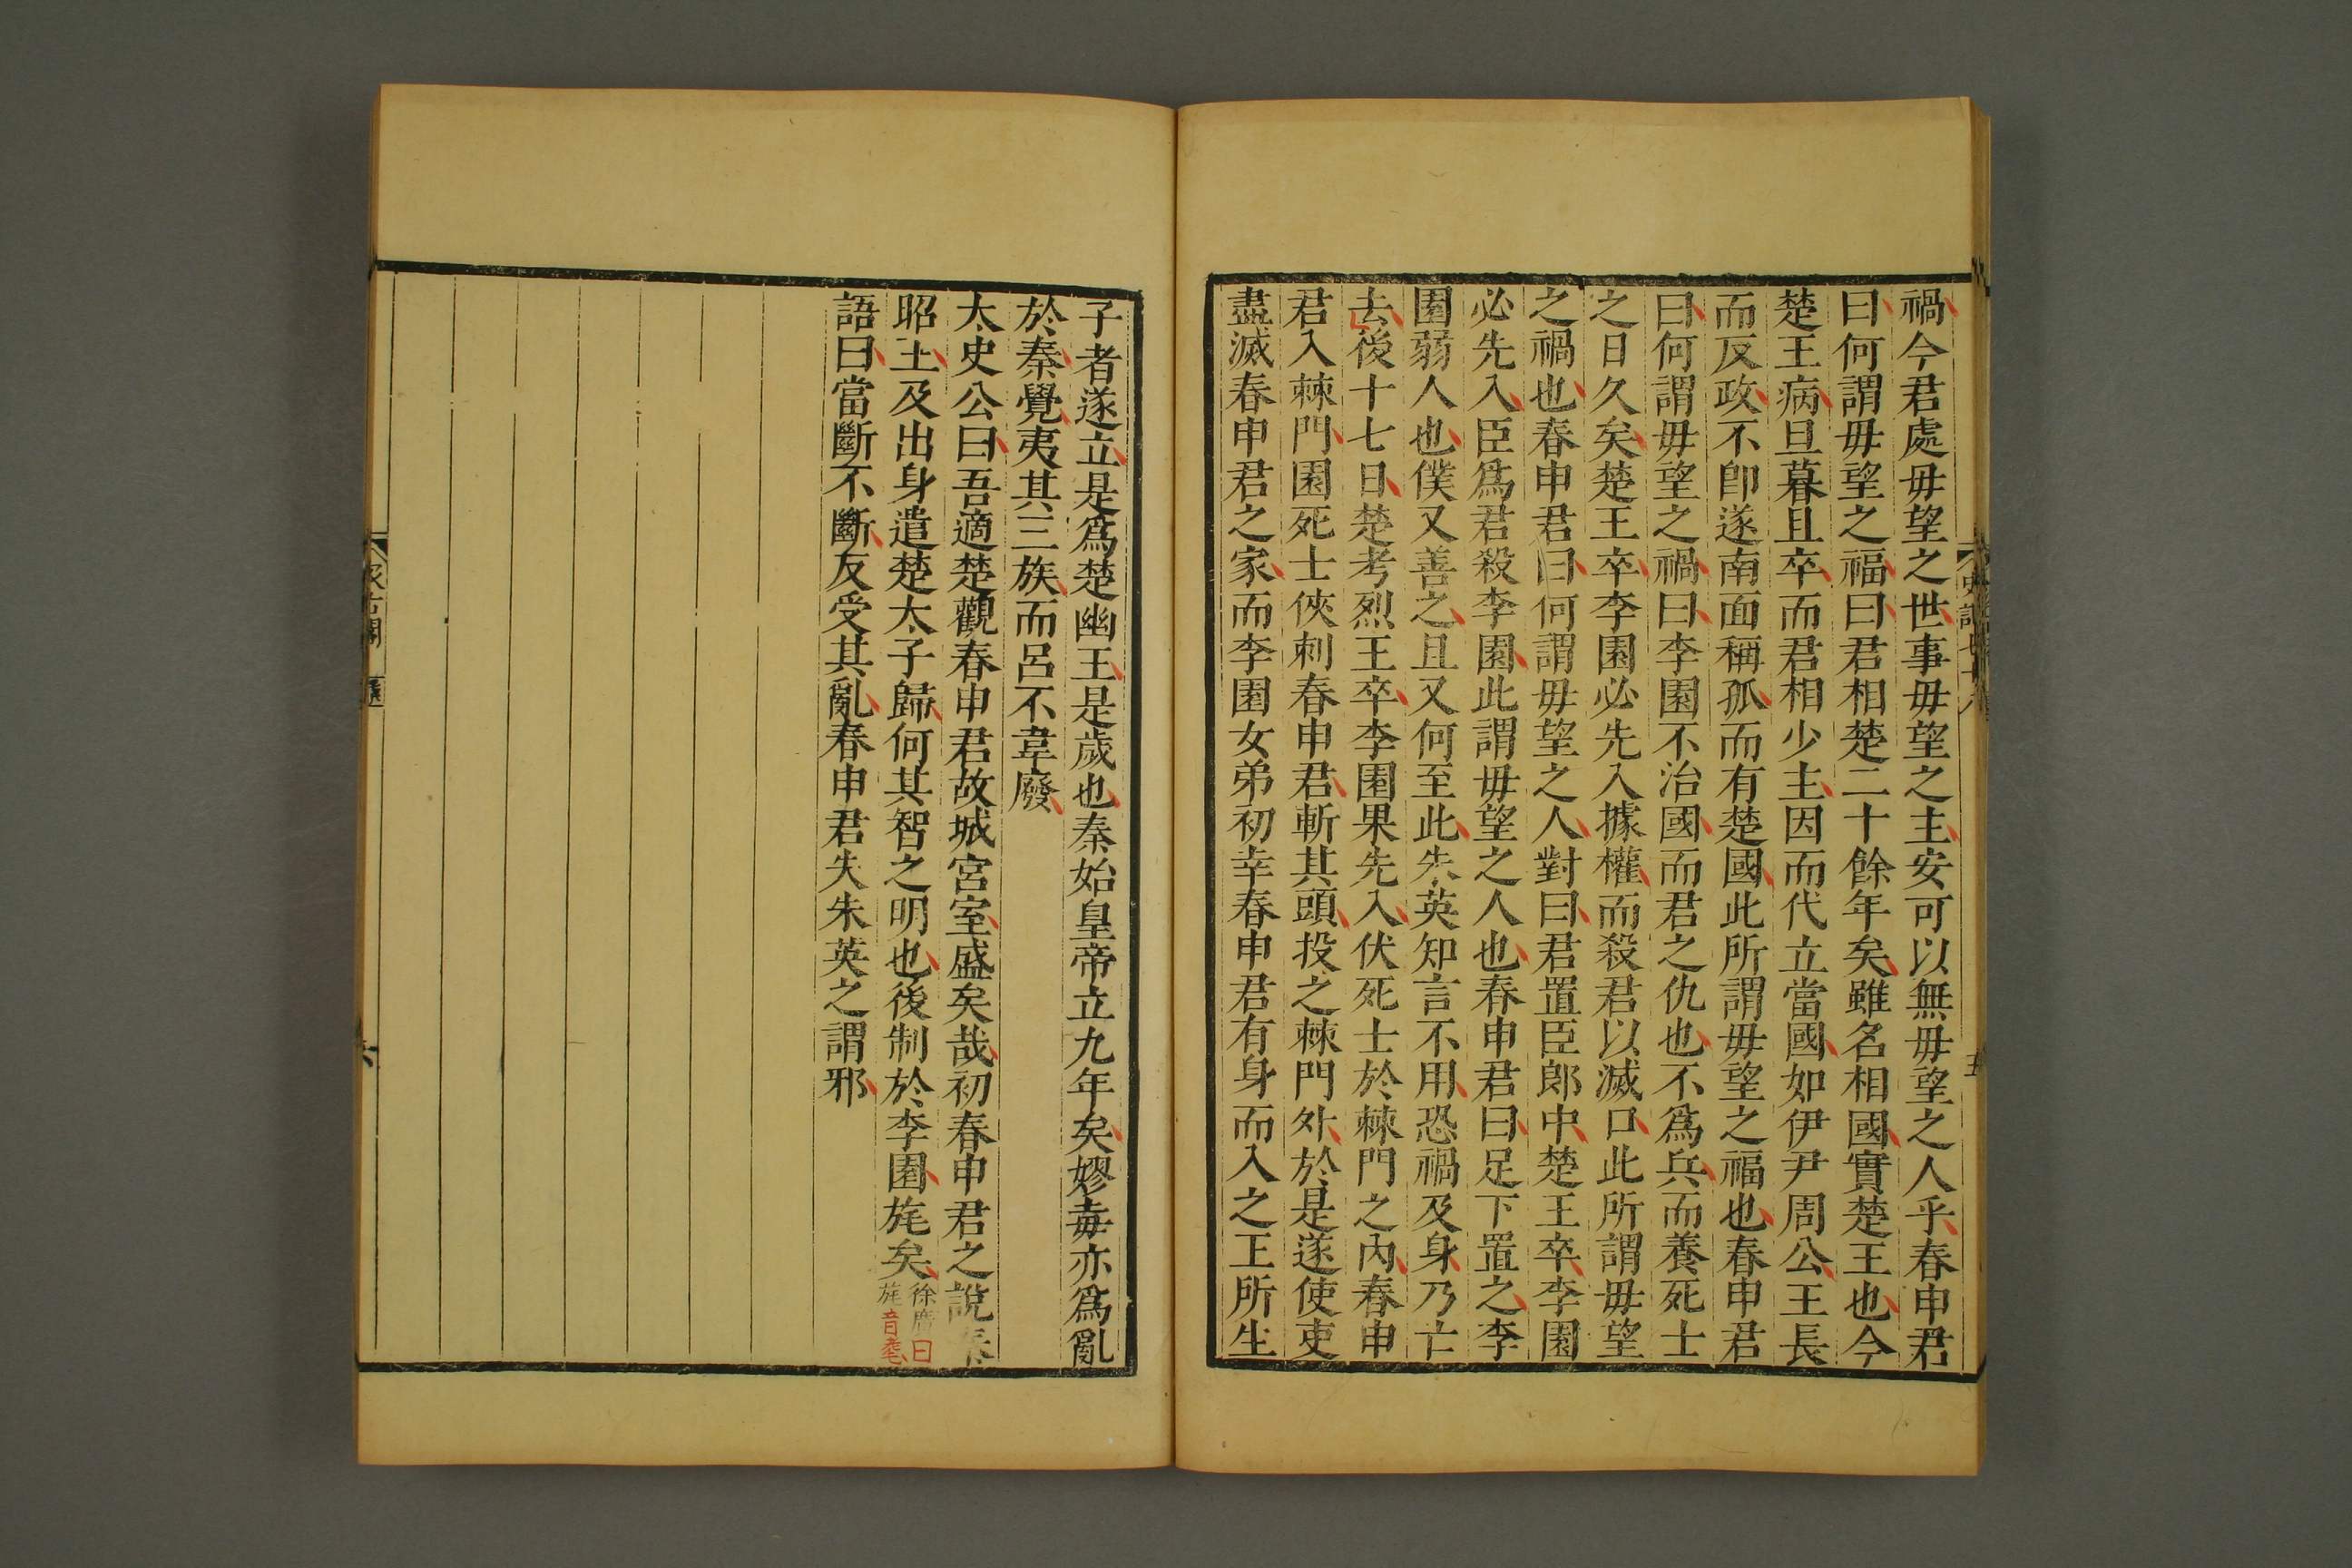 禍今君處毋望之世事毋望之主安可以無毋望之人乎春申君
曰何謂毋望之福曰君相楚二十餘年矣雖名相國實楚王也今
楚王病旦暮且卒而君相少主因而代立當國如伊尹周公王長
而反政不卽遂南面稱孤而有楚國此所謂毋望之福也春申君
曰何謂毋望之禍曰李園不治國而君之仇也不爲兵而養死士
之日久矣楚王卒李園必先入據權而殺君以滅口此所謂毋望
之禍也春申君曰何謂毋望之人對曰君置臣郎中楚王卒李園
必先入臣爲君殺李園此謂毋望之人也春申君曰足下置之李
園弱人也僕又善之且又何至此朱英知言不用恐禍及身乃亡
去後十七日楚考烈王卒李園果先入伏死士於棘門之內春申
君入棘門園死士俠刺春申君斬其頭投之棘門外於是遂使吏
盡滅春申君之家而李園女弟初幸春申君有身而入之王所生
史記七十八
五
子者遂立是爲楚幽王是歲也秦始皇帝立九年矣嫪毐亦爲亂
於秦覺夷其三族而呂不韋廢
太史公曰吾適楚觀春申君故城宮室盛矣哉初春申君之說秦
昭王及出身遣楚太子歸何其智之明也後制於李園旄矣
徐廣曰
旄音耄
語曰當斷不斷反受其亂春申君失朱英之謂邪
汲古閣
六